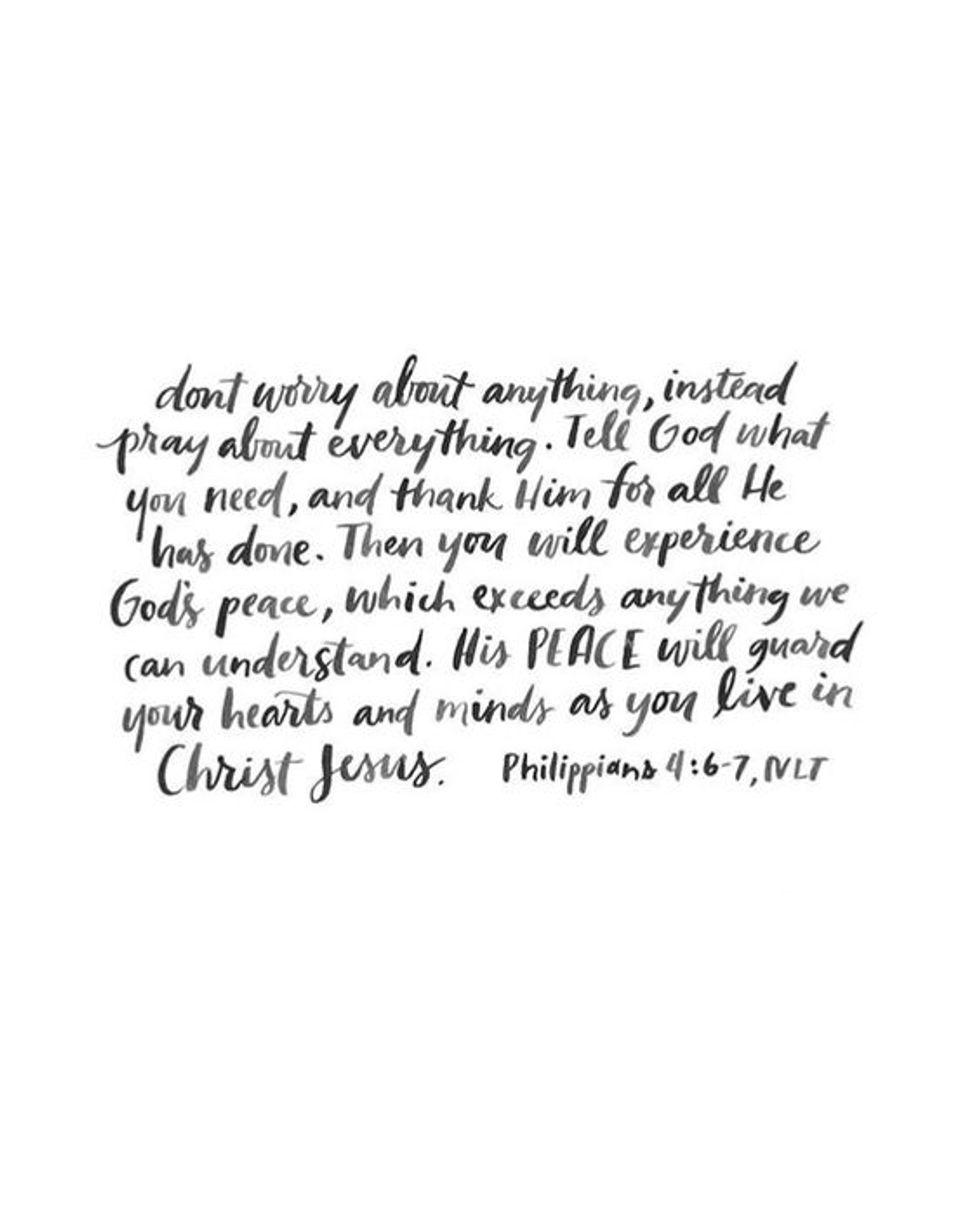 dont worry about anything, instead
pray about everything. Tell God what
you need, and thank Him for all He
has done. Then you will experience
God's peace, which exceeds anything we
can understand. His PEACE will guard
your hearts and minds as you live in
Christ Jesus. Philippians 4:6-7, NLT